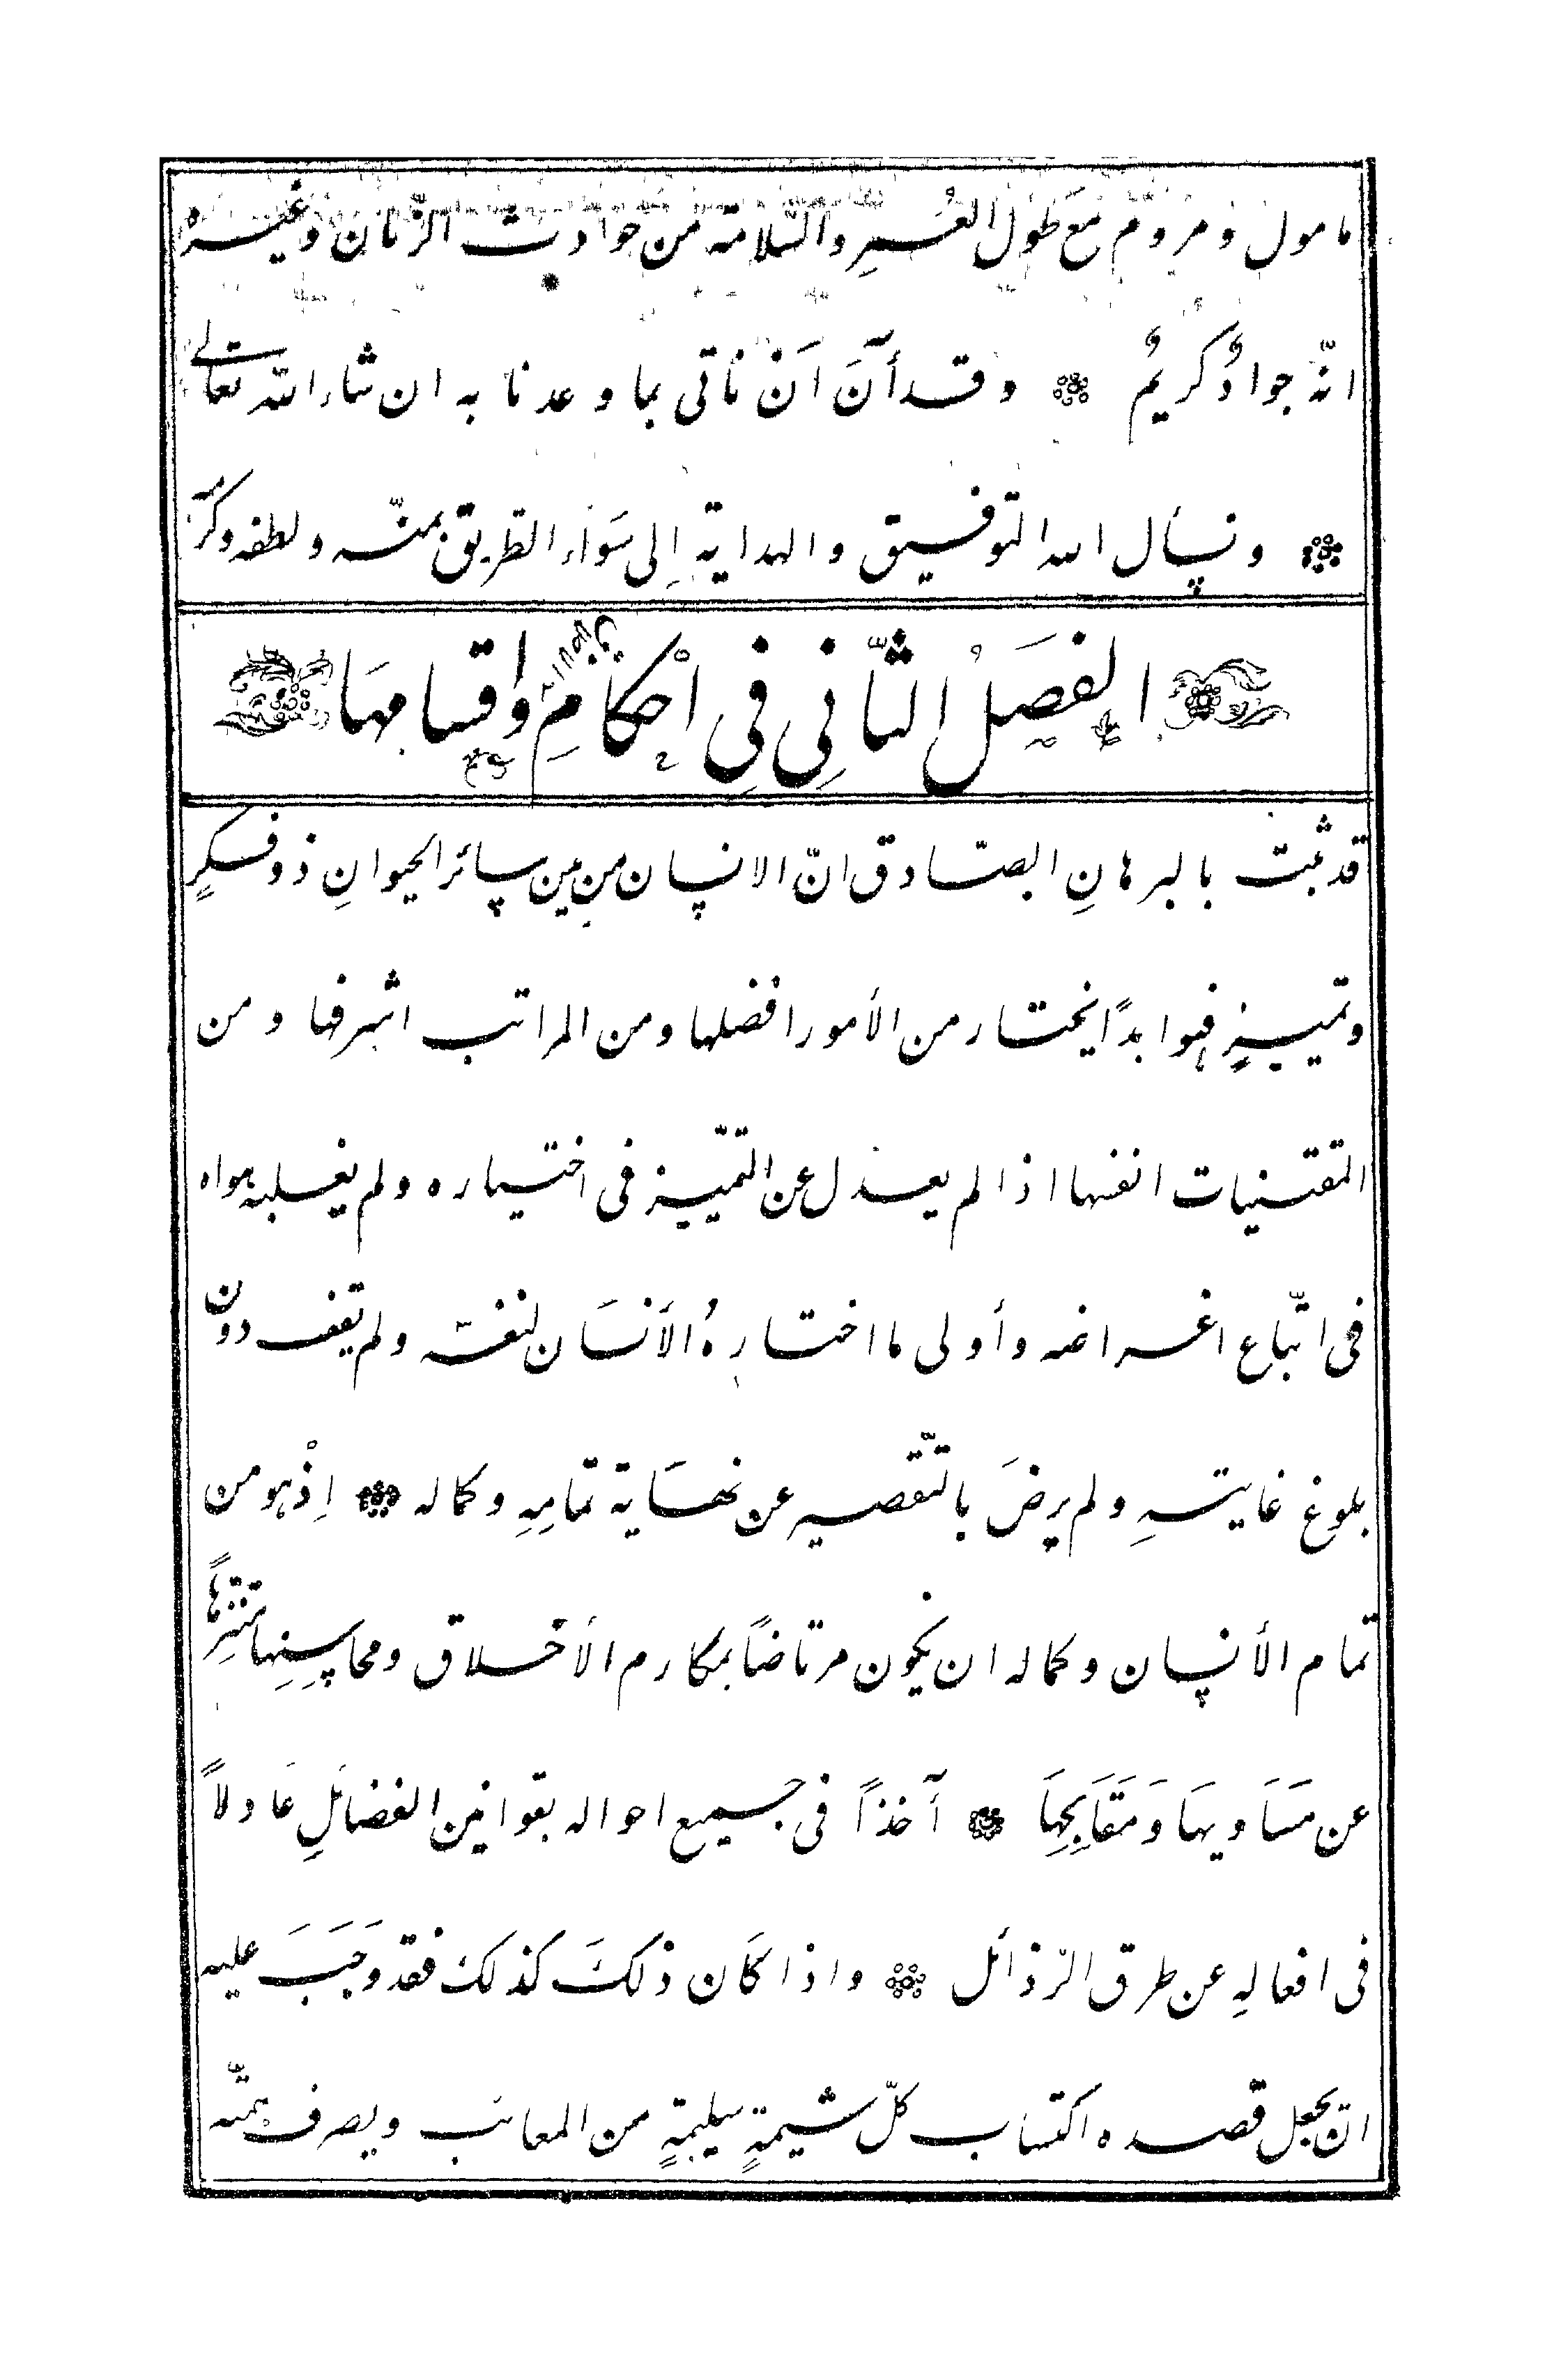 مامول ومروم مَعَ طُول العُمرِ والسّلامة من حوادث الزّمان وغيره
انّه جوادٌ كريمٌ ۞ وقد أنَ اَنْ ناتى بما وعدنا به ان شاء الله تعالى
۞ ونسأل الله التوفيق والهداية إلى سَوَاء الطّريق بمنّه ولطفه وكرمه
الفصَلْ الثّانِى فى احْكَامِ الاخلاق واقسامهَا
قد ثبت بالبرهانِ الصّادق انّ الانسان من بين سائر الحيوانِ ذو فكرٍ
وتمييزٍ فهو ابدًا يختار من الأمور افضلها ومن المراتب اشرفها ومن
المقتنيات انفسها اذا لم يعدل عن التّمييز فى اختياره ولم يغلبه هواه
فى اتّباع اغراضه وأولى ما اختارهُ الأنسَان لنفسه ولم يقف دون
بلوغ غايتهِ ولم يرضَ بالتّقصير عن نهَاية تمامِهِ وكماله ۞ إذْ هو من
تمام الأنسان وكماله ان يكون مرتاضاً بمكارم الأخلاق ومحاسِنِها متنزِّهاً
عن مَسَاويهَا وَمَقَابِحِهَا ۞ آخذاً فى جميع احواله بقوانين الفضائلِ عَادلاً
فى افعالهِ عن طرق الرّذائل ۞ واذا كَان ذلكَ كذلك فقد وَجَبَ عليه
ان يجعل قصده اكتساب كلّ شيمةٍ سليمةٍ من المعائب ويصرف همّته